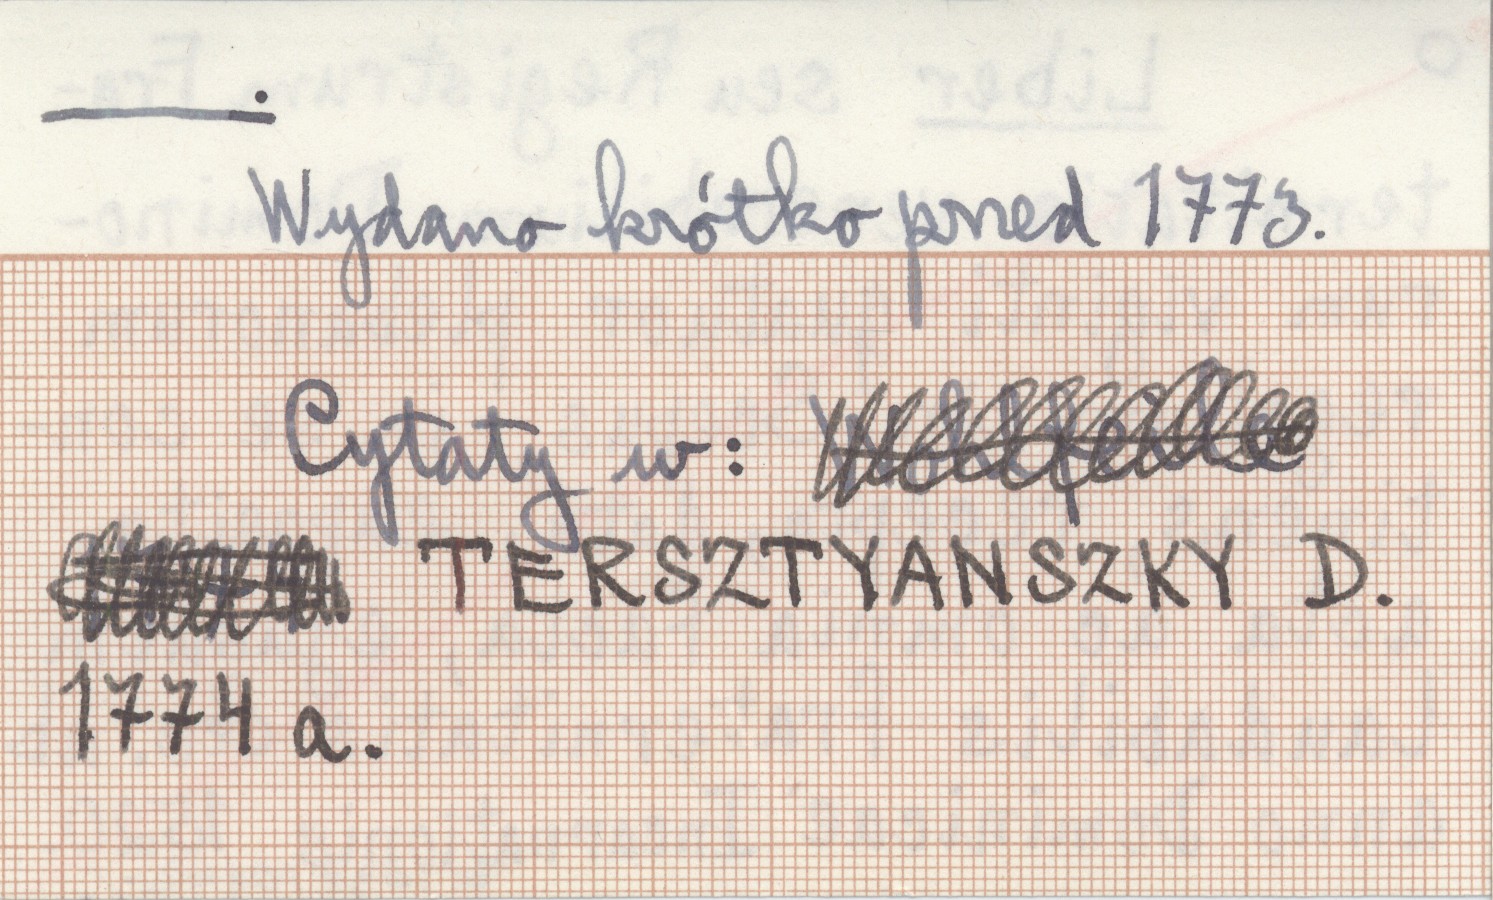 Wydano krótko przed 1773.
Cytaty w:
TERSZTYANSZKY D.
1774 a.